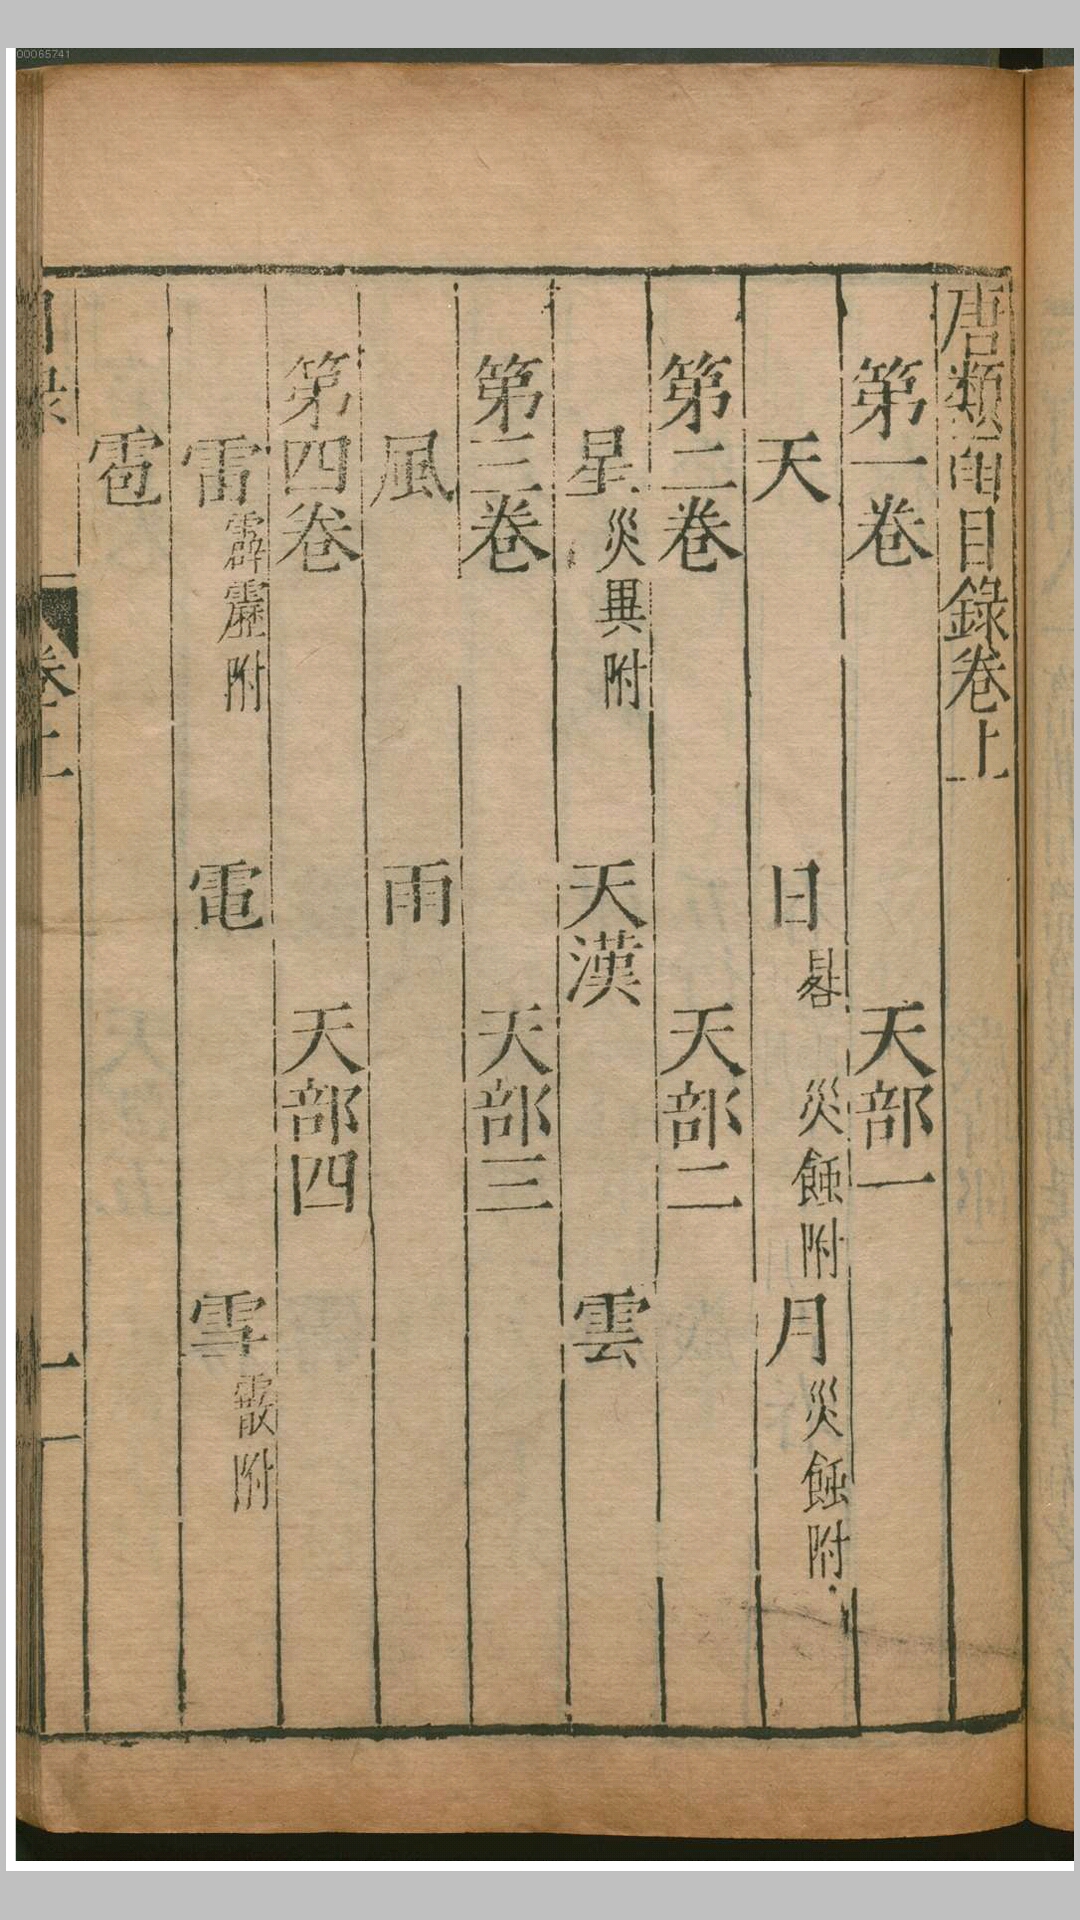 00065741
唐類函目錄卷上
第一卷 天部一
天 日晷 災蝕附 月災蝕附
第二卷 天部二
星災異附 天漢 雲
第三卷 天部三
風 雨
第四卷 天部四
雷霹靂附 電 雪霰附
雹
目錄 卷上 一